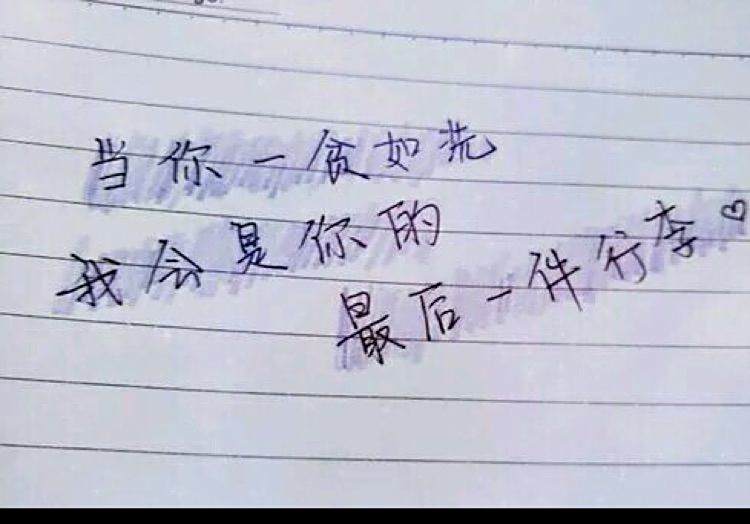 当你一贫如洗
我会是你的
最后一件行李♡